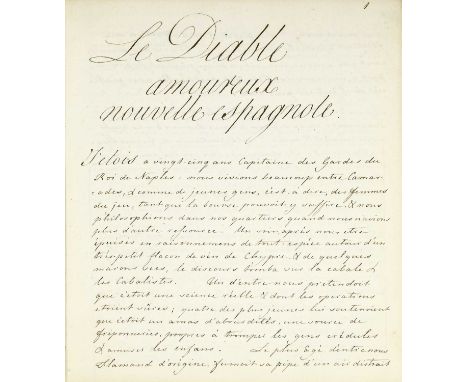 1
Le Diable
amoureux
nouvelle espagnole.
J'etois a vingt-cinq ans Capitaine des Gardes du
Roi de Naples: nous vivions beaucoup entre Camar-
rades, & comme de jeunes gens, c'est-a-dire, des femmes
du jeu, tant que la bourse pouvoit y suffire & nous
philosophions dans nos quartiers quand nous n'avions
plus d'autre ressource. Un soir, après nous être
épuisés en raisonnemens de tout espèce autour d'un
très petit flacon de vin de Chypre & de quelques
marons secs, le discours tomba sur la cabale &
les Cabalistes. Un d'entre nous prétendoit
que c'étoit une science réelle & dont les operations
étoient sûres; quatre des plus jeunes lui soutenoient
que c'étoit un amas d'absurdités, une source de
friponneries, propres à tromper les gens crédules
& amuser les enfans. Le plus âgé d'entre nous
flamand d'origine, fumoit sa pipe d'un air distrait